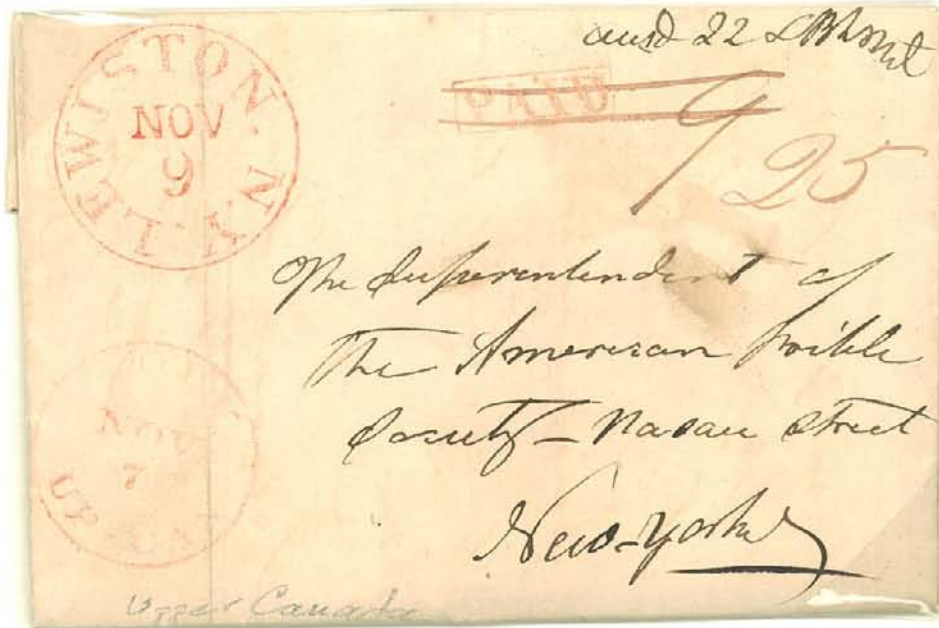 LEWISTON. N.Y.
NOV
9
PAID
9
25
The Superentendent of
The American Bible
Society – Nasau Street
New-York
NOV
7
Upper Canada